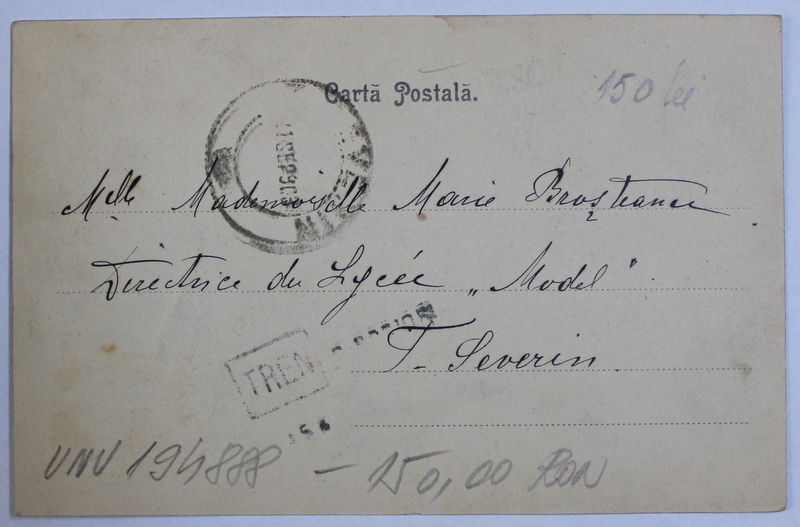 Cartă Poștală.
150 lei
Mlle Mademoiselle Marie Broșteanu
Directrice du Lycée „Model”
T- Severin
TREN
VNV 194888 — 150,00 RON